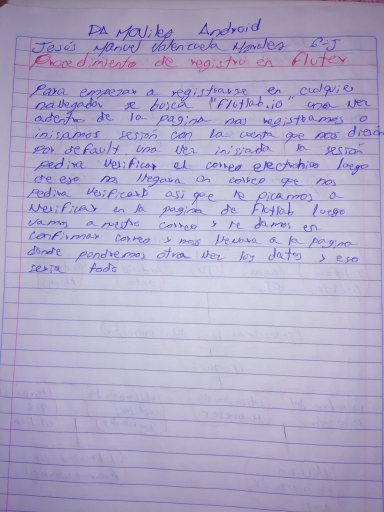 DA Moviles Android
Jesús Manuel Valenzuela Morales 6-J
Procedimiento de registro en Fluter
Para empezar a registrarse en culquier
navegador se busca "flutlab.io" una vez
adentro de la pagina nos registramos o
inisiamos sesión con la cuenta que nos dieron
por default una vez iniciada la sesión
pedira verificar el correo electronico luego
de eso nos llegara un correo que nos
pedira verificarlo asi que le picamos a
verificar en la pagina de Flutlab luego
vamos a nestro correo y le damos en
confirmar correo y nos llevara a la pagina
donde pondremos otra vez los datos y eso
seria todo